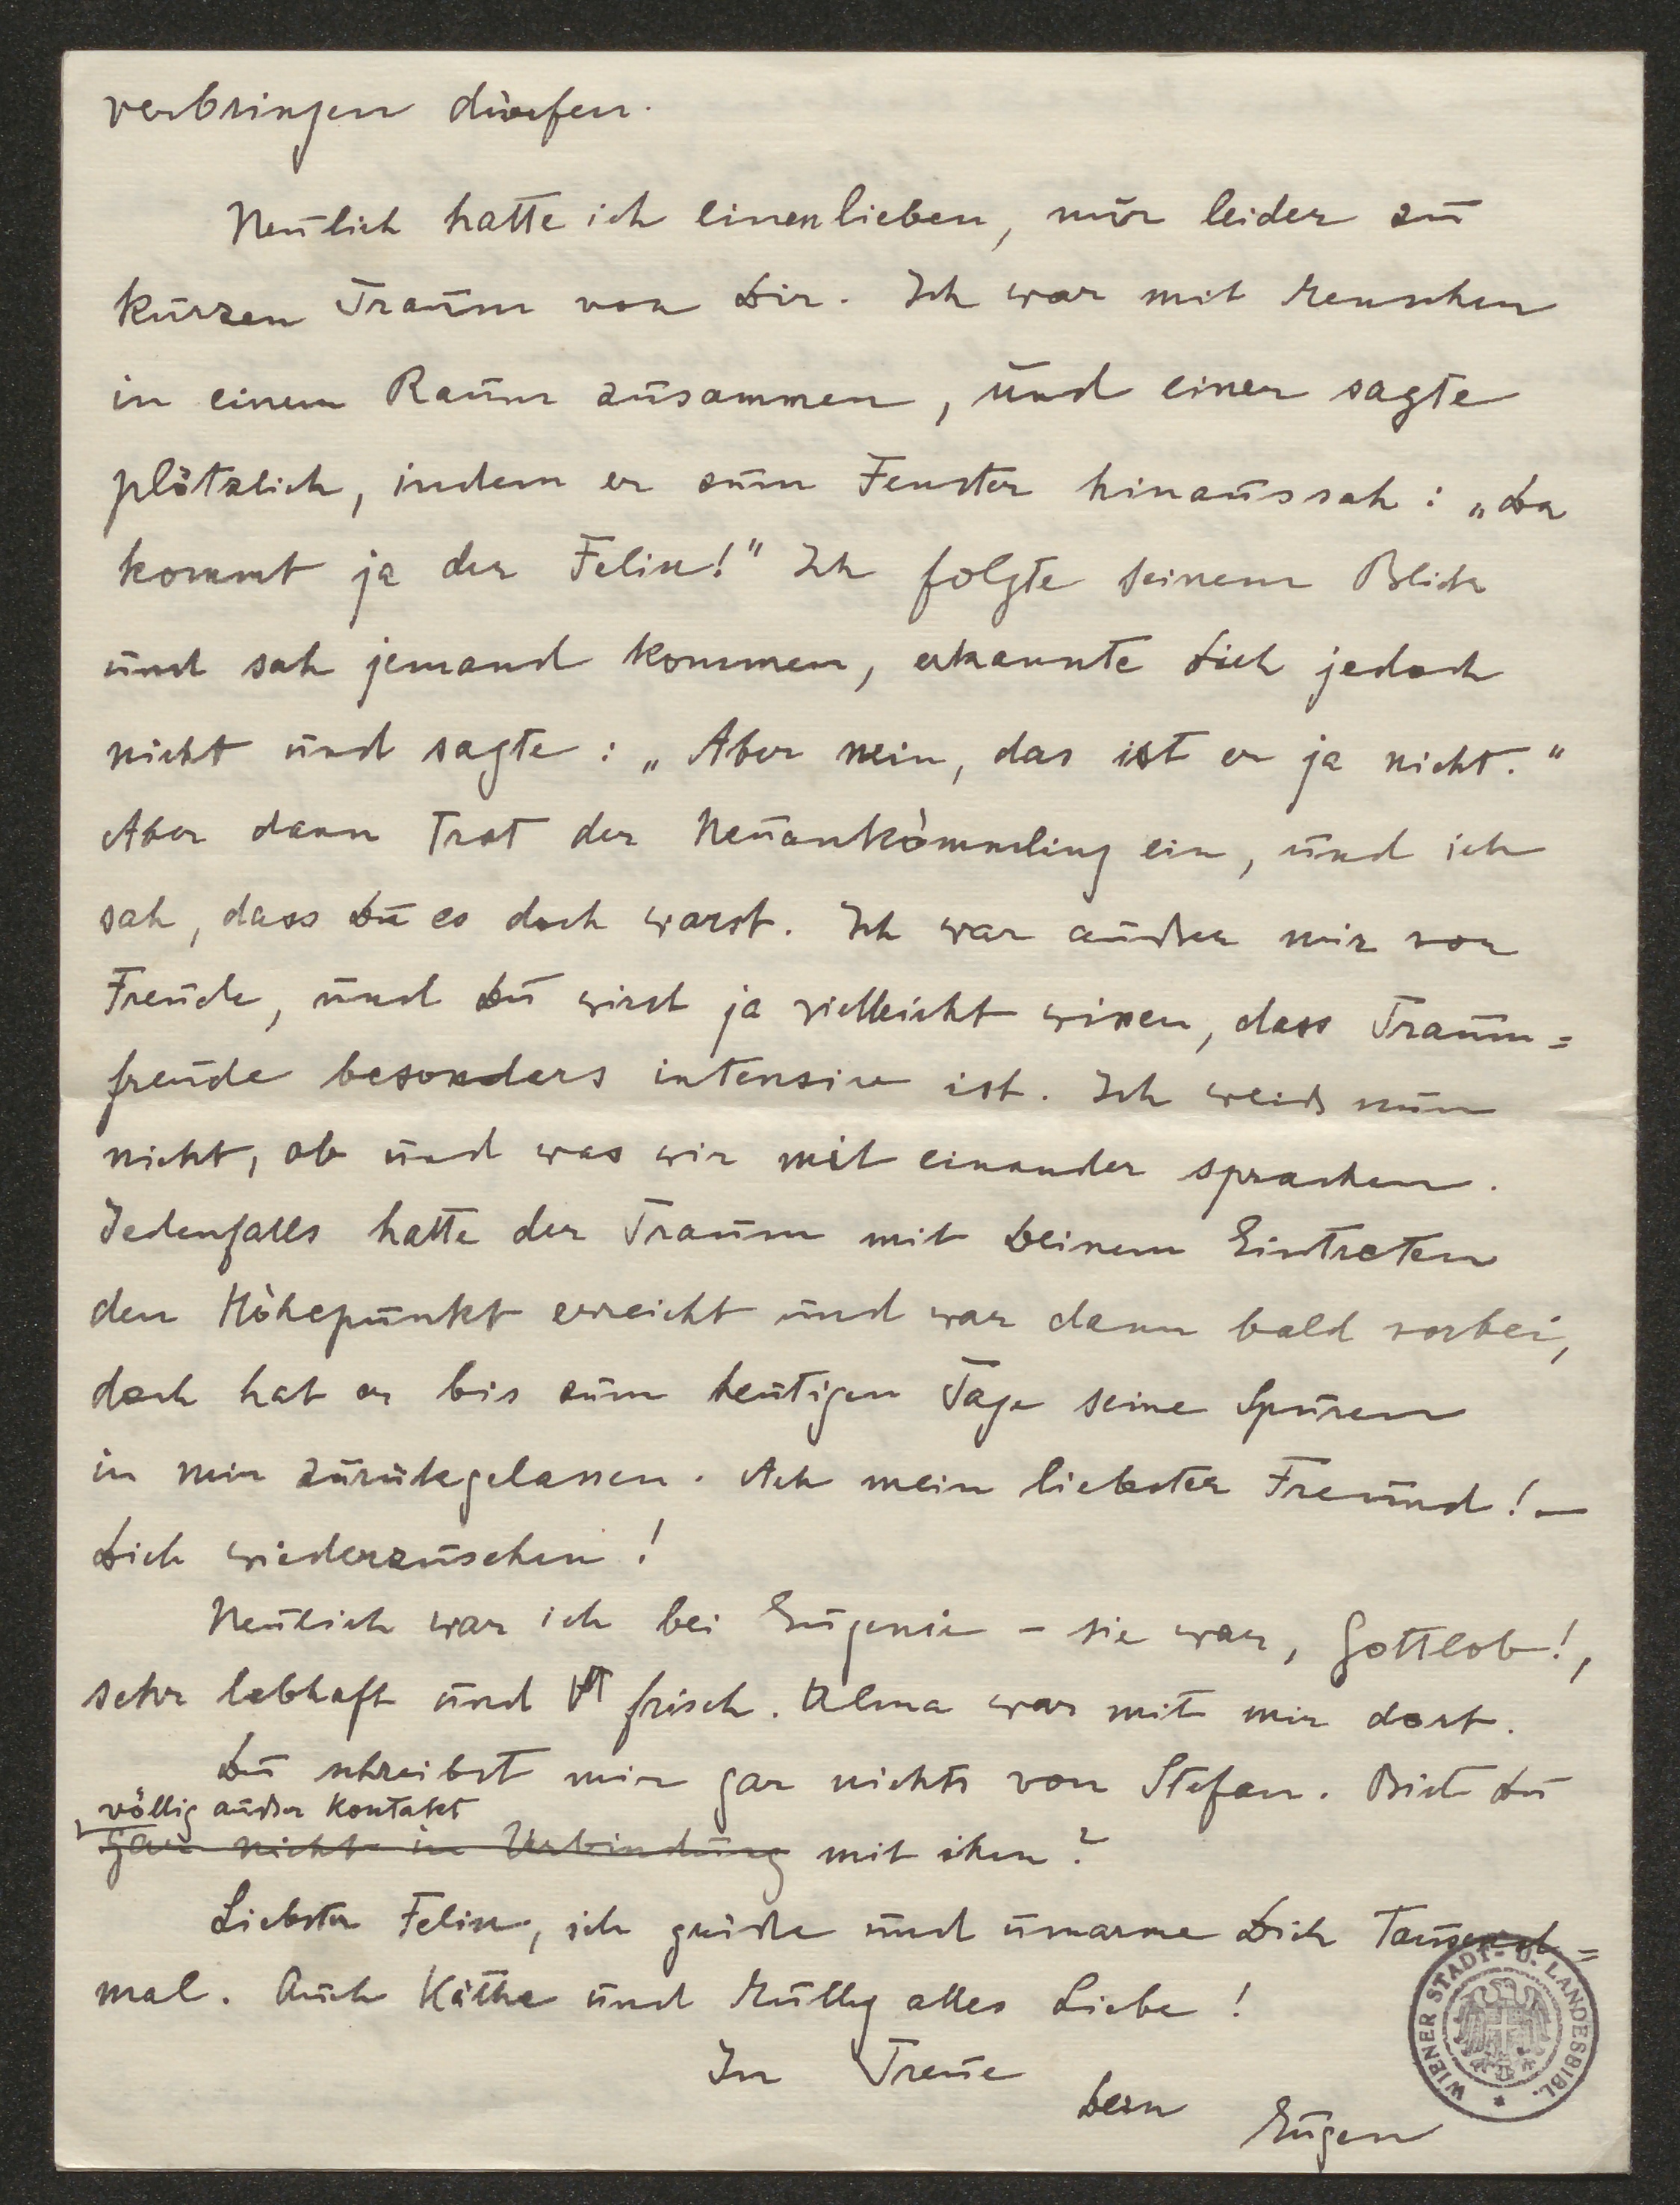 verbringen dürfen.
Neulich hatte ich einen lieben, nur leider zu
kurzen Traum von Dir. Ich war mit Menschen
in einem Raum zusammen, und einer sagte
plötzlich, indem er zum Fenster hinaussah: „Da
kommt ja der Felix!" Ich folgte seinem Blick
und sah jemand kommen, erkannte Dich jedoch
nicht und sagte: „Aber nein, das ist er ja nicht."
Aber dann trat der Neuankömmling ein, und ich
sah, dass Du es doch warst. Ich war außer mir vor
Freude, und Du wirst ja vielleicht wissen, dass Traum=
freude besonders intensiv ist. Ich weiß nun
nicht, ob und was wir mit einander sprachen.
Jedenfalls hatte der Traum mit Deinem Eintreten
den Höhepunkt erreicht und war dann bald vorbei,
doch hat er bis zum heutigen Tage seine Spuren
in mir zurückgelassen. Ach mein liebster Freund! –
Dich wiederzusehen!
Neulich war ich bei Eugenie – sie war, Gottlob!,
sehr lebhaft und frisch. Alma war mit mir dort.
Du schreibst mir gar nichts von Stefan. Bist Du
völlig außer Kontakt
gar nicht in Verbindung mit ihm?
Liebster Felix, ich grüße und umarme Dich tausend=
mal. Auch Käthe und Mully alles Liebe!
In Treue
Dein
Eugen
WIENER STADT- U. LANDESBIBL.